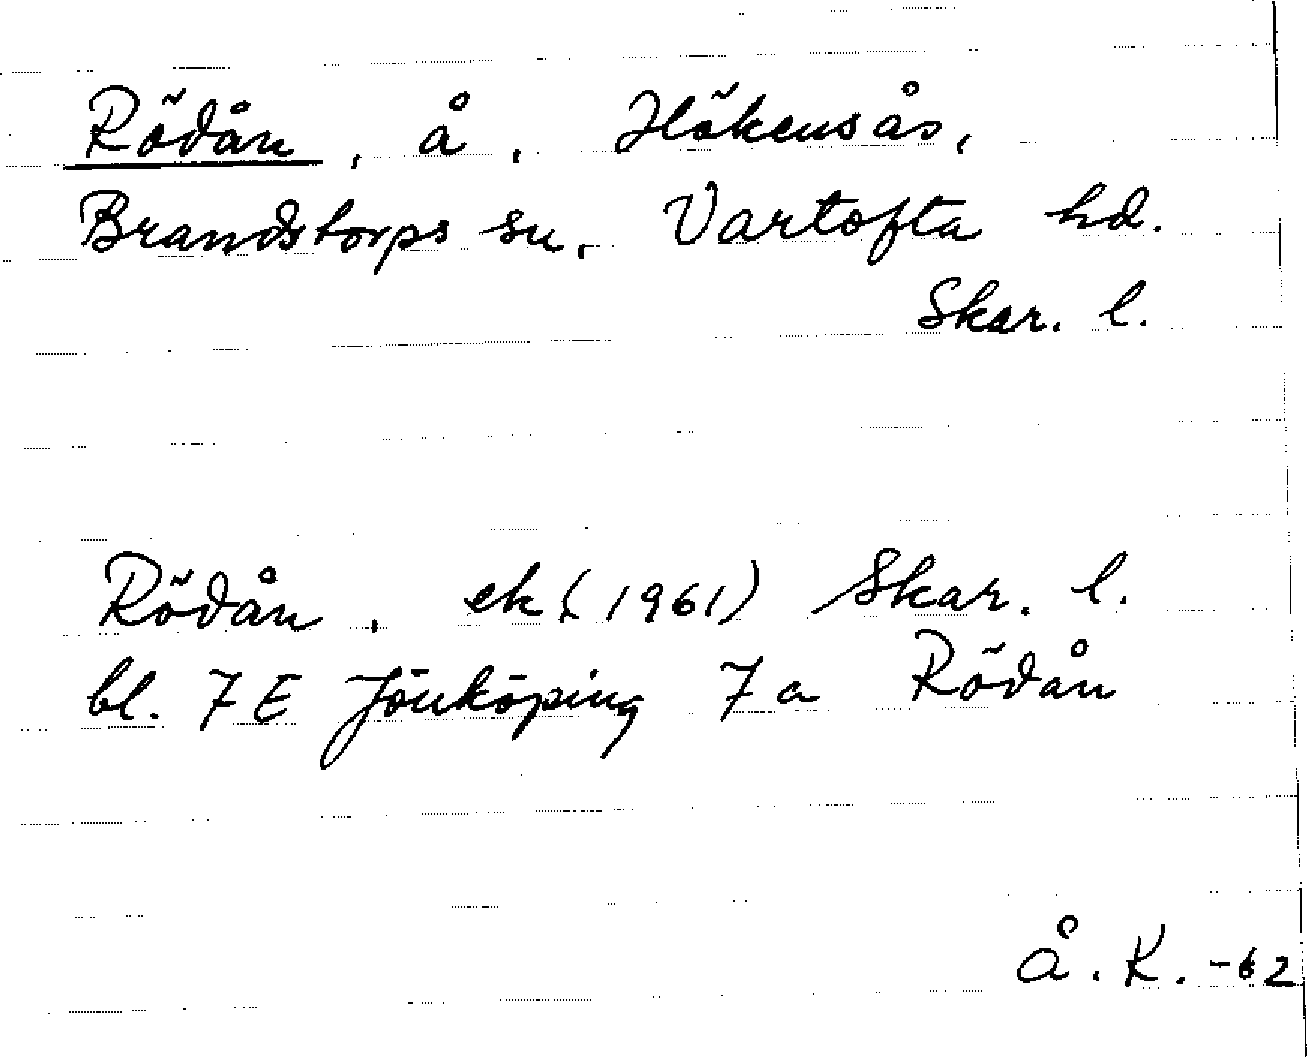 Rödån, å, Hökensås,
Brandstorps sn, Vartofta hd.
Skar. l.
Rödån, ek (1961) Skar. l.
bl. 7 E Jönköping 7 a Rödån
Å. K. -62